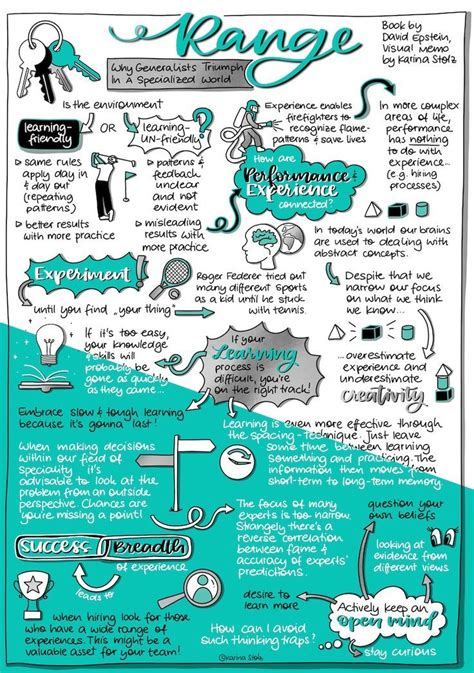 Range
Why Generalists Triumph
In A Specialized World
Book by
David Epstein,
Visual Memo
by Karina Stolz
Is the environment
learning-
friendly
OR
learning-
UN-friendly?
▷ same rules
apply day in
& day out
(repeating
patterns)
▷ better results
with more practice
▷ patterns &
feedback
unclear
and not
evident
▷ misleading
results with
more practice
Experience enables
firefighters to
recognize flame-
patterns & save lives
How are
Performance &
Experience
connected?
In more complex
areas of life,
performance
has nothing
to do with
experience...
(e.g. hiring
processes)
In today's world our brains
are used to dealing with
abstract concepts.
Experiment
until you find "your thing"
Roger Federer tried out
many different sports
as a kid until he stuck
with tennis.
Despite that we
narrow our focus
on what we think
we know...
...overestimate
experience and
underestimate
creativity
If it's too easy,
your knowledge &
skills will
probably be
gone as quickly
as they came...
If your
Learning
process is
difficult, you're
on the right track!
Embrace slow & tough learning
because it's gonna last!
Learning is even more effective through
the spacing-technique. Just leave
some time between learning
something and practicing. The
information then moves from
short-term to long-term memory.
When making decisions
within our field of
speciality it's
advisable to look at the
problem from an outside
perspective. Chances are
you're missing a point!
The focus of many
experts is too narrow.
Strangely there's a
reverse correlation
between fame &
accuracy of experts'
predictions.
question your
own beliefs
looking at
evidence from
different views
Success
Breadth
of experience
leads to
when hiring look for those
who have a wide range of
experiences. This might be a
valuable asset for your team!
desire to
learn more
How can I avoid
such thinking traps?
Actively keep an
open mind
stay curious
©karina stolz